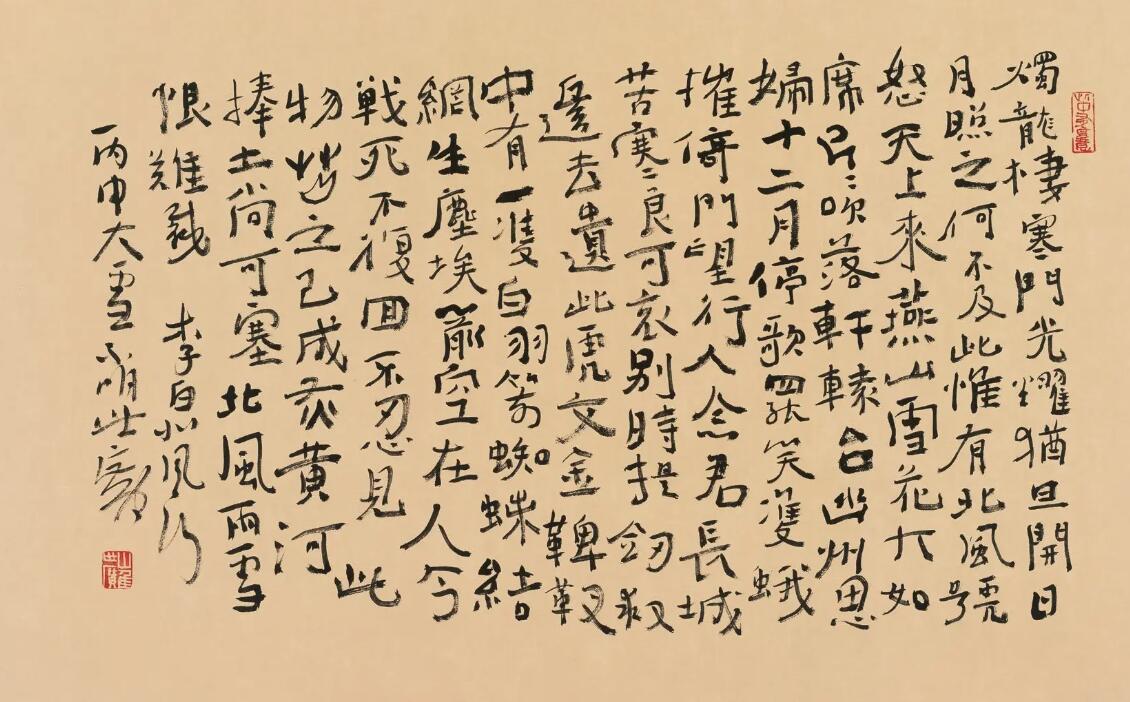 燭龍棲寒門光耀猶旦開日
月照之何不及此惟有北風號
怒天上來燕山雪花大如
席片片吹落軒轅台幽州思
婦十二月停歌罷笑雙蛾
摧倚門望行人念君長城
苦寒良可哀別時提劒救
邊去遺此虎文金鞞靫
中有一雙白羽箭蜘蛛結
網生塵埃箭空在人今
戦死不復回不忍見此
物焚之已成灰黃河
捧土尚可塞北風雨雪
恨難裁 李白北風行
丙申大雪